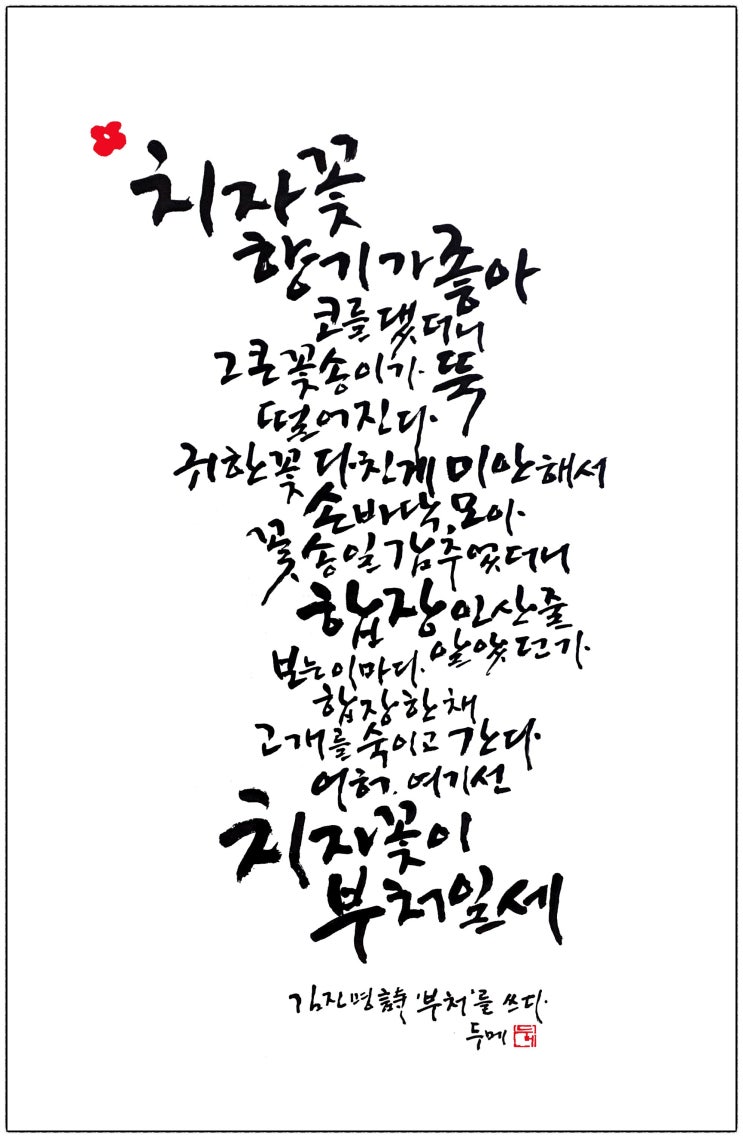 치자꽃
향기가 좋아
코를 댔더니
그 큰 꽃송이가 뚝
떨어진다.
귀한 꽃 다친게 미안해서
손바닥 모아
꽃송일 감추었더니
합장인 산 줄
알았던가.
보는 이마다.
합장한 채
고개를 숙이고 간다.
어허, 여기선
치자꽃이
부처일세
김진명 詩 '부처'를 쓰다.
두메
두메